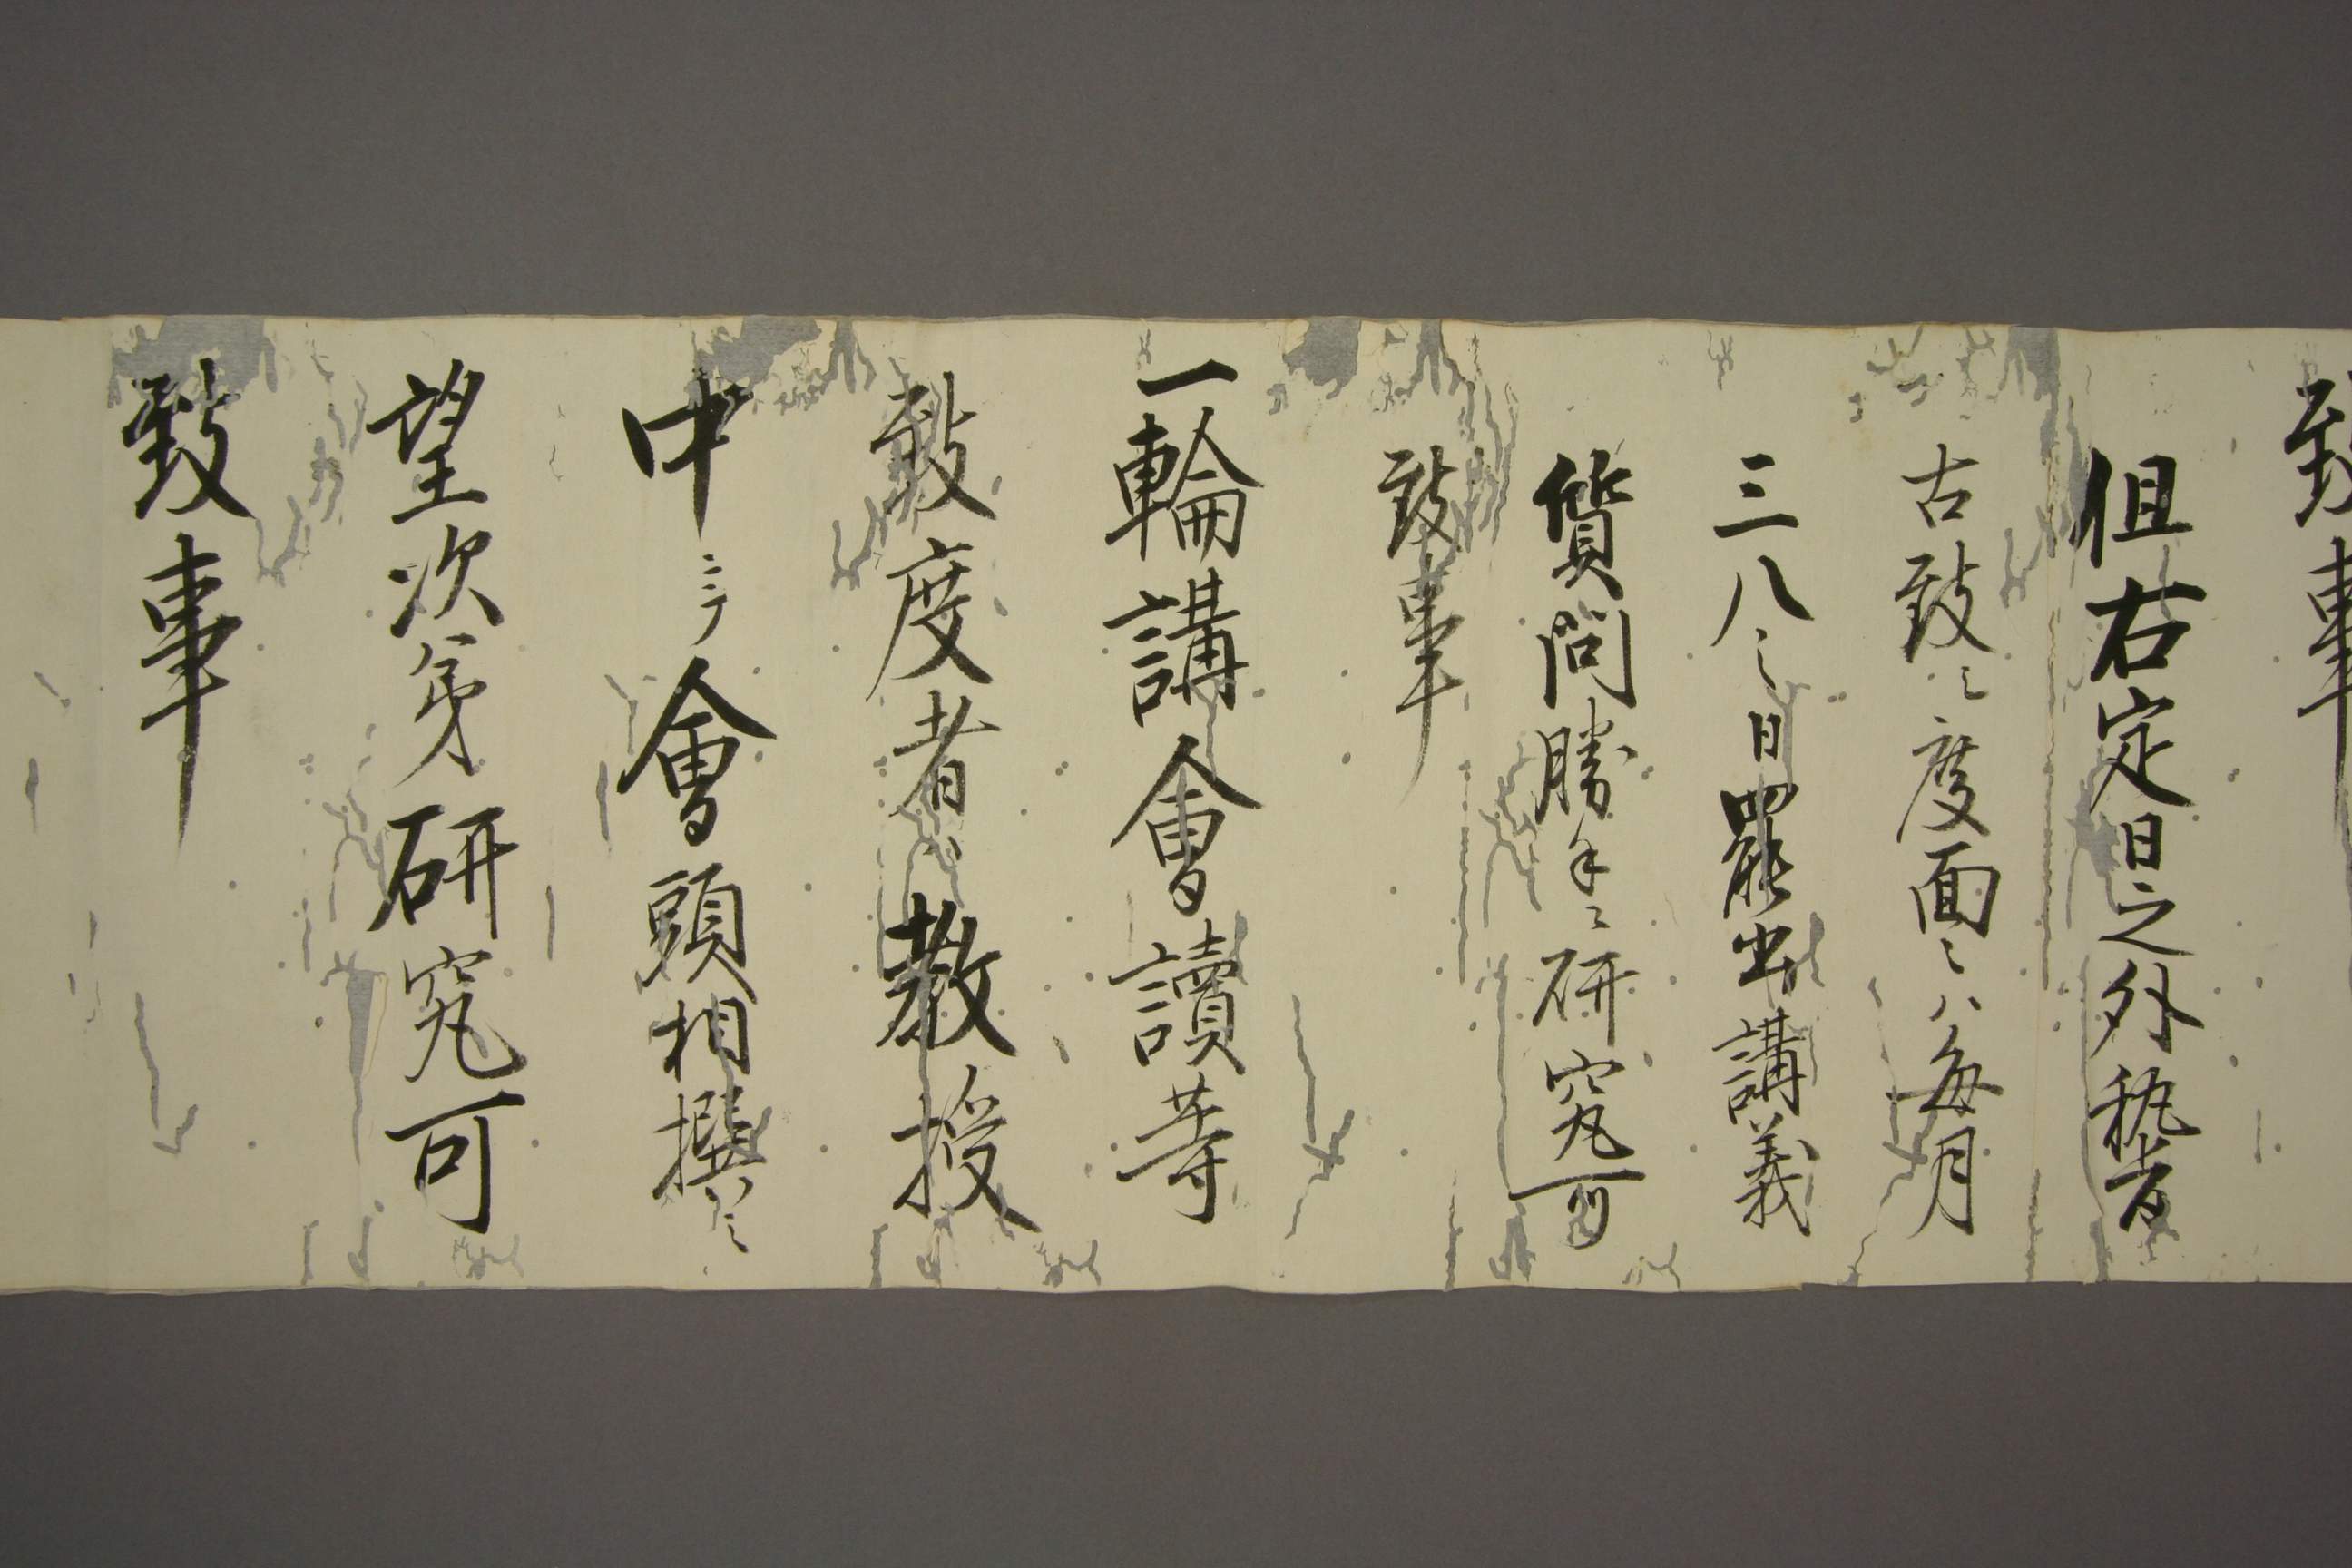 致事
但右定日之外稽
古致シ度面々ハ毎月
三八之日罷出講義
質問勝手ニ研究可
致事
一輪講會讀等
致度者ハ教授
中ニテ會頭相撰ミ
望次第研究可
致事